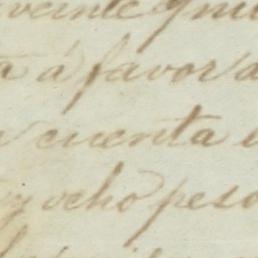 veinte y nu
a á favor d
cuenta
y ocho peso